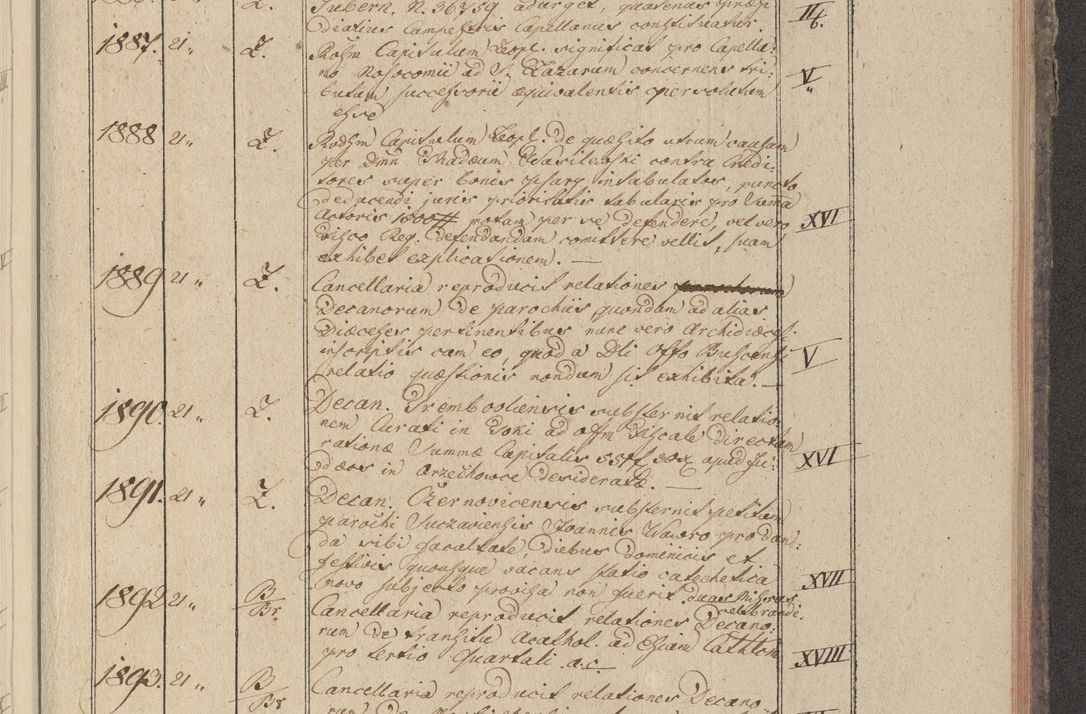 Gubern. N. 36759 adurget, quatenus præfi
Z. diatius Campestris Capellanus constituatur. IIb.
1887. 21 „ Z. Rssm Capitulum Leopl. significat pro Capella:
no Nosocomii ad S. Lazarum concernens tri:
butum successorii æquivalentis persolutum V„
esse
1888 21 „ Z. Rvdssm Capitulum Leopl. de quæsito utrum causam
per Dnum Thadæum Wasilewski contra Credi:
tores super bonis intabulatos, puncto
deducendi juris prioritatis tabularis pro Summa
Actoris motam per se defendere, vel vero XVI
Fisco Reg. defendandam comittere vellit, suam
exhibet explicationem. —
1889 21 „ Z. Cancellaria reproducit relationes
Decanorum de parochiis quondam ad alias
Diæceses pertinentibus nunc vero Archidiæcesi
inscriptis cum eo, quod a Dli Offo Buscensi V
relatio quæstionis nondum sit exhibita. —
1890. 21 „ Z. Decan. Trembovliensis substernit relatio:
nem Curati in Toki ad Offm Fiscale directam
ratione Summæ Capitalis apud Ju: XVI
dæos in Orzechowce desideratæ. —
1891. 21 „ Z. Decan. Czernovicensis substernit petitum
parochi Suczaviensis Joannis Waoro pro dan:
da sibi facultate diebus dominicis et
festivis quousque vacans statio catechetica XVII
novo subjecto provisa non fuerit duas Missas
celebrandi.
1892 21 „ B/Br Cancellaria reproducit relationes Decano:
rum de transitu Acathol. ad Ecciam Catholm
pro tertio Quartali a.c. — XVIII
1893. 21 „ B/Br Cancellaria reproducit relationes Decano
rum de